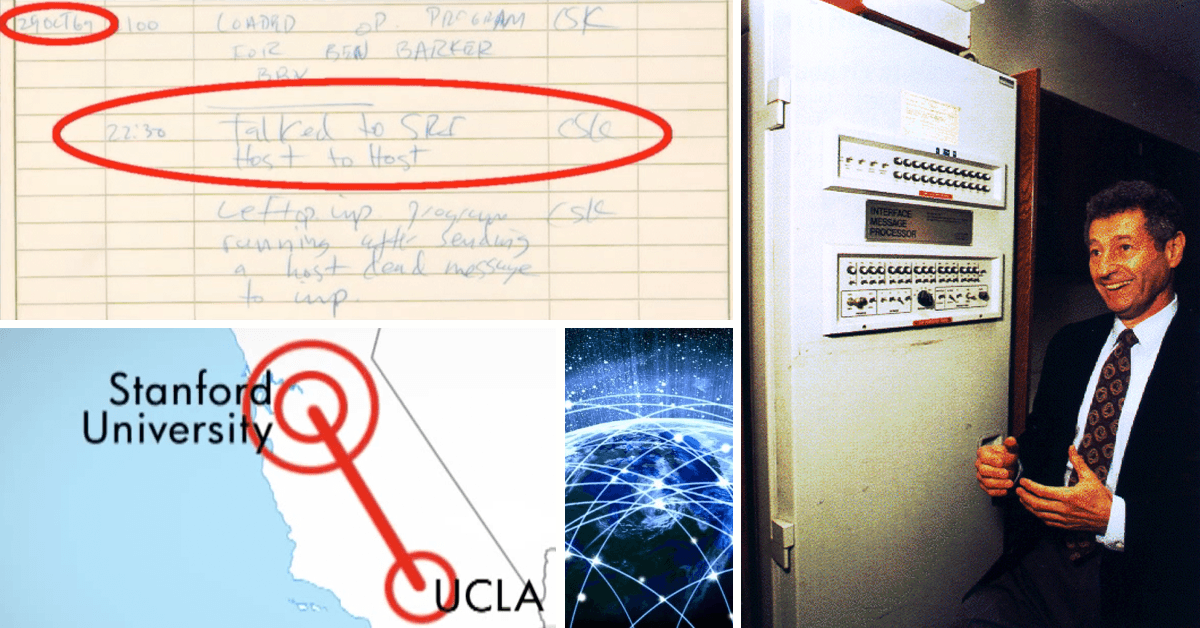 29 OCT 69 2100 LOADED OP. PROGRAM CSK
FOR BEN BARKER
BBN
22:30 Talked to SRI CSK
Host to Host
Left op. imp. program CSK
running after sending
a host dead message
to imp.
Stanford
University
UCLA
INTERFACE
MESSAGE
PROCESSOR